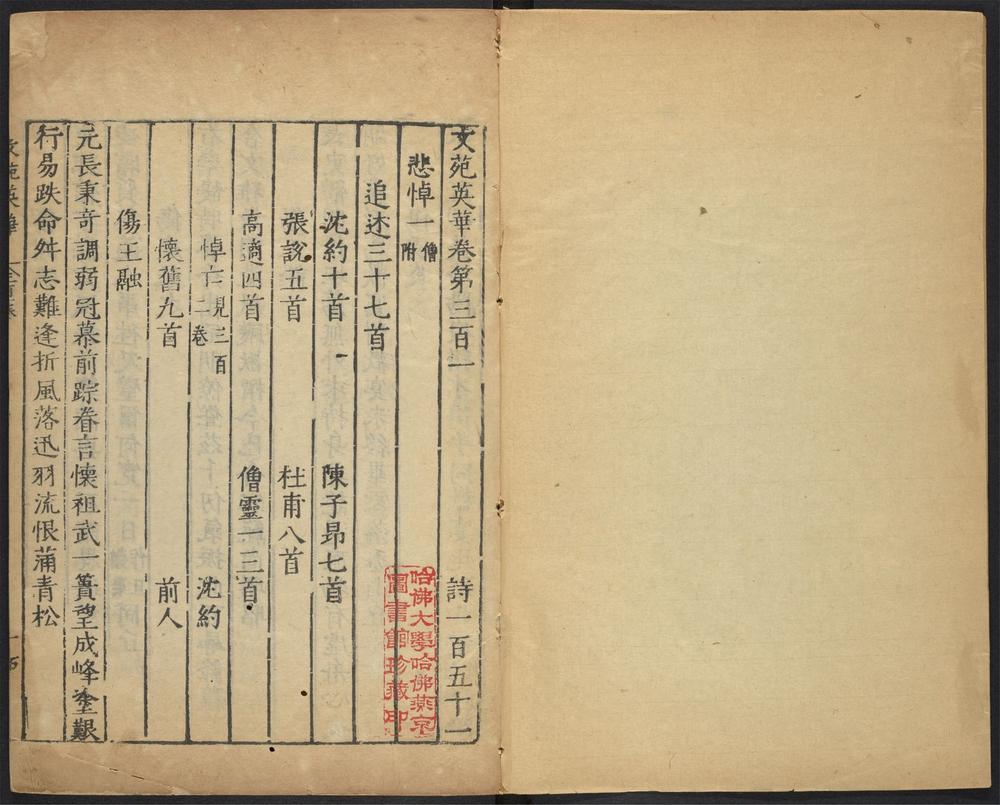 文苑英華卷第三百一 詩一百五十一
悲悼一 僧附
追述三十七首
沈約十首 陳子昻七首
張說五首 杜甫八首
高適四首 僧靈一三首
悼亡 見三百二卷 沈約
懷舊九首 前人
傷王融
元長秉奇調弱冠慕前踪眷言懐祖武一簣望成峰塗艱
行易跌命舛志難逢折風落迅羽流恨蒲青松
哈佛大學哈佛燕京
圖書館珍藏印
文苑英華